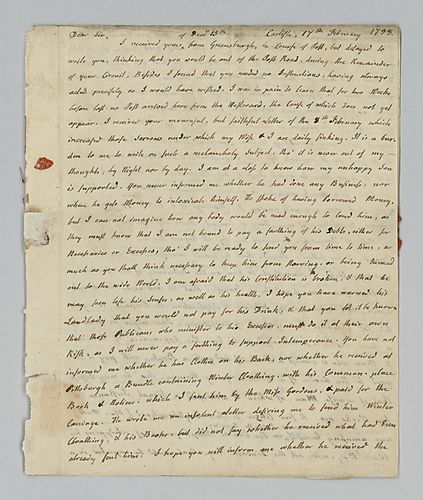 Dear Sir, of Decr 15th Carlisle, 17th February 1798.
I received yours, from Greensburgh, in Course of Post, but delayed to
write you, thinking that you would be out of the Post Road, during the Remainder
of your Circuit, Besides I found that you needed no Instructions, having always
acted precisely as I would have wished. I was in pain to learn that for two Weeks
before last no Post arrived here from the Westward, the Cause of which does not yet
appear. I received your mournful, but faithful Letter of the 8th February which
increased those Sorrows under which my Wife & I are daily sinking. It is a bur-
den to me to write on such a melancholy Subject, tho' it is never out of my
thoughts, by Night nor by day. I am at a loss to know how my unhappy Son
is supported. You never informed me whether he had done any Business, nor
where he gets Money to intoxicate himself. He spoke of having borrowed Money,
but I can not imagine how any body would be mad enough to lend him, as
they must know that I am not bound to pay a farthing of his Debts, either for
Necessaries or Excesses, tho' I will be ready to send you from time to time, as
much as you shall think necessary to keep him from starving, or being turned
out to the wide World. I am afraid that his Constitution is broken, & that he
may soon lose his Senses, as well as his health. I hope you have warned his
Landlady that you would not pay for his Drink, & that you let it be known
that those Publicans who minister to his Excesses, must do it at their own
Risk, as I will never pay a farthing to support Intemperance. You have not
informed me whether he has Clothes on his Back, nor whether he received at
Pittsburgh a Bundle containing Winter Cloathing, with his Common-place
Book & Notices, which I sent by the Miss Gordons, & paid for the
Carriage. He wrote me an insolent Letter desiring me to send him Winter
Cloathing, & his Books, but did not say whether he received what had been
already sent him. I hope you will inform me whether he received the